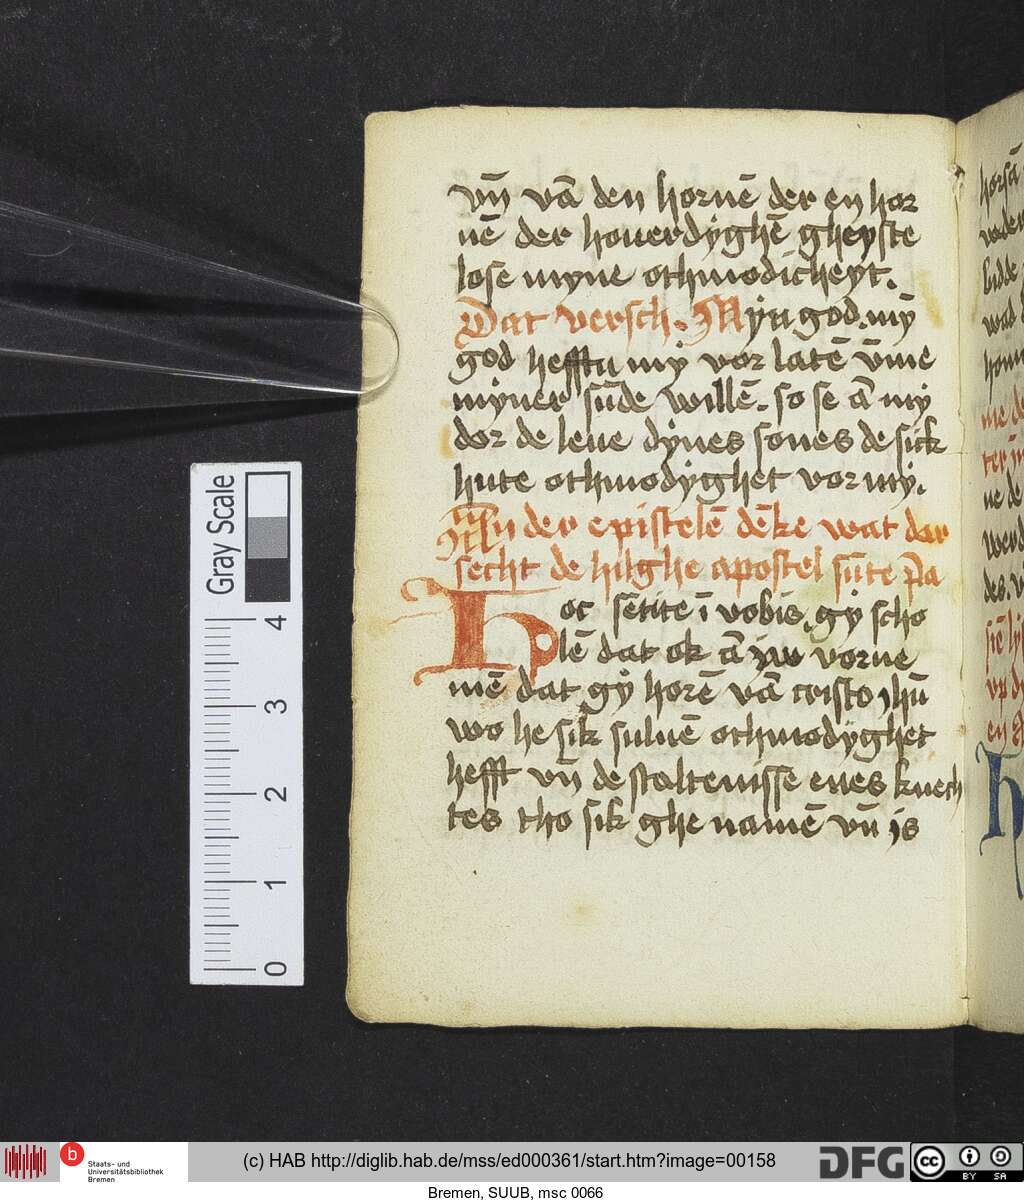 vn̄ vā den hornē der en hor
nē der houerdyghē gheyste
lose myne othmodicheyt.
Dat versch. Myn god. mȳ
god hefftu my vor latē v̄me
myner sūde willē. so se ā my
dor de leue dynes sones de sick
hute othmodyghet vor my.
An der epistelē dēke wat dar
secht de hilghe apostel sūte pa
Hoc sētite ī vobis. gy scho
lē dat ok ā iw vorne
mē dat gy horē vā cristo ihū
wo he sik suluē othmodyghet
hefft vn̄ de staltenisse enes knech
tes tho sik ghe namē vn̄ is
horsā
bidde
wad
ne de
werd
des. v
vp d
Gray Scale
4
3
2
1
0
b
Staats- und
Universitätsbibliothek
Bremen
(c) HAB http://diglib.hab.de/mss/ed000361/start.htm?image=00158
DFG
cc
BY SA
Bremen, SUUB, msc 0066